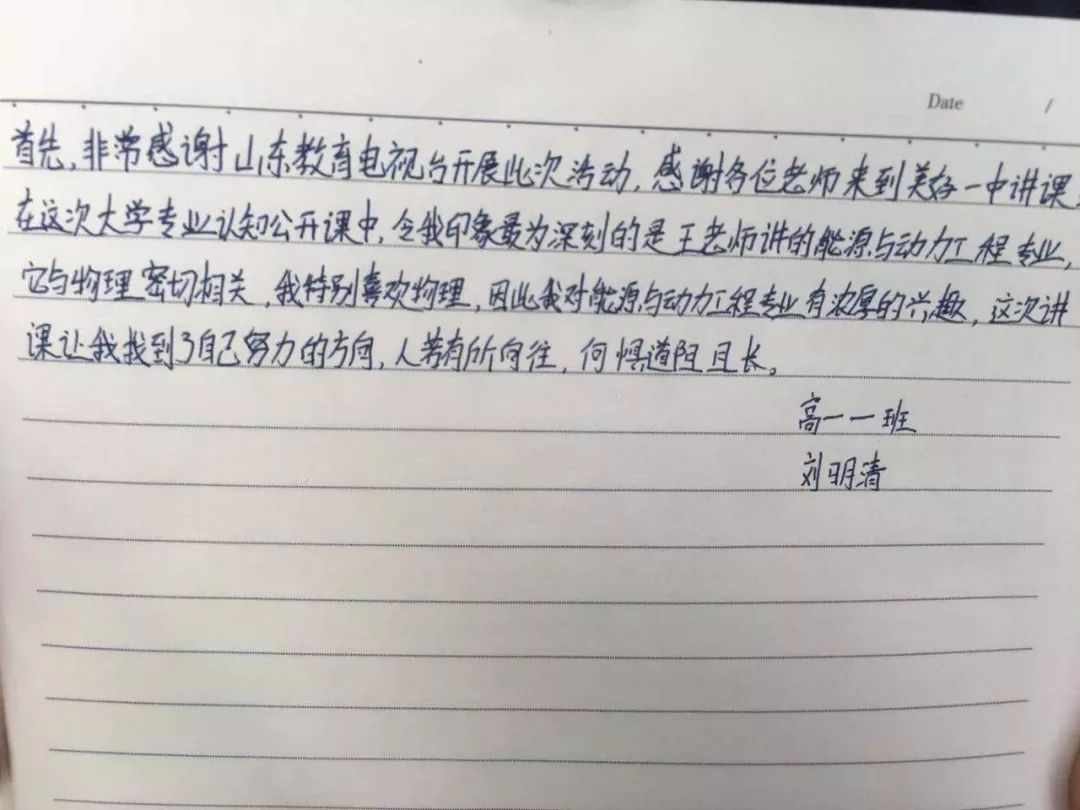 Date /
首先,非常感谢山东教育电视台开展此次活动,感谢各位老师来到美好一中讲课,
在这次大学专业认知公开课中,令我印象最为深刻的是王老师讲的能源与动力工程专业,
它与物理密切相关,我特别喜欢物理,因此我对能源与动力工程专业有浓厚的兴趣,这次讲
课让我找到了自己努力的方向,人若有所向往,何惧道阻且长。
高一一班
刘明清